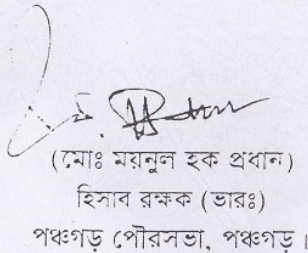 (মোঃ ময়নুল হক প্রধান)
হিসাব রক্ষক (ভারঃ)
পঞ্চগড় পৌরসভা, পঞ্চগড়।